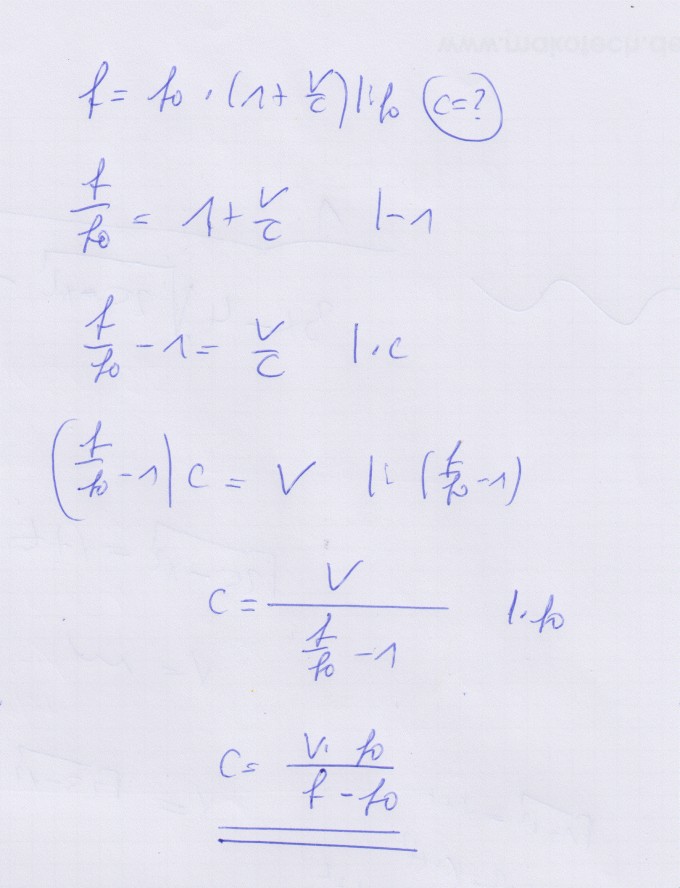 f = f₀ · (1 + v/c) |:f₀ (c=?)
f/f₀ = 1 + v/c |-1
f/f₀ - 1 = v/c |·c
(f/f₀ - 1) c = v |: (f/f₀ - 1)
c = v/(f/f₀ - 1) |·f₀
c = (v· f₀)/(f - f₀)